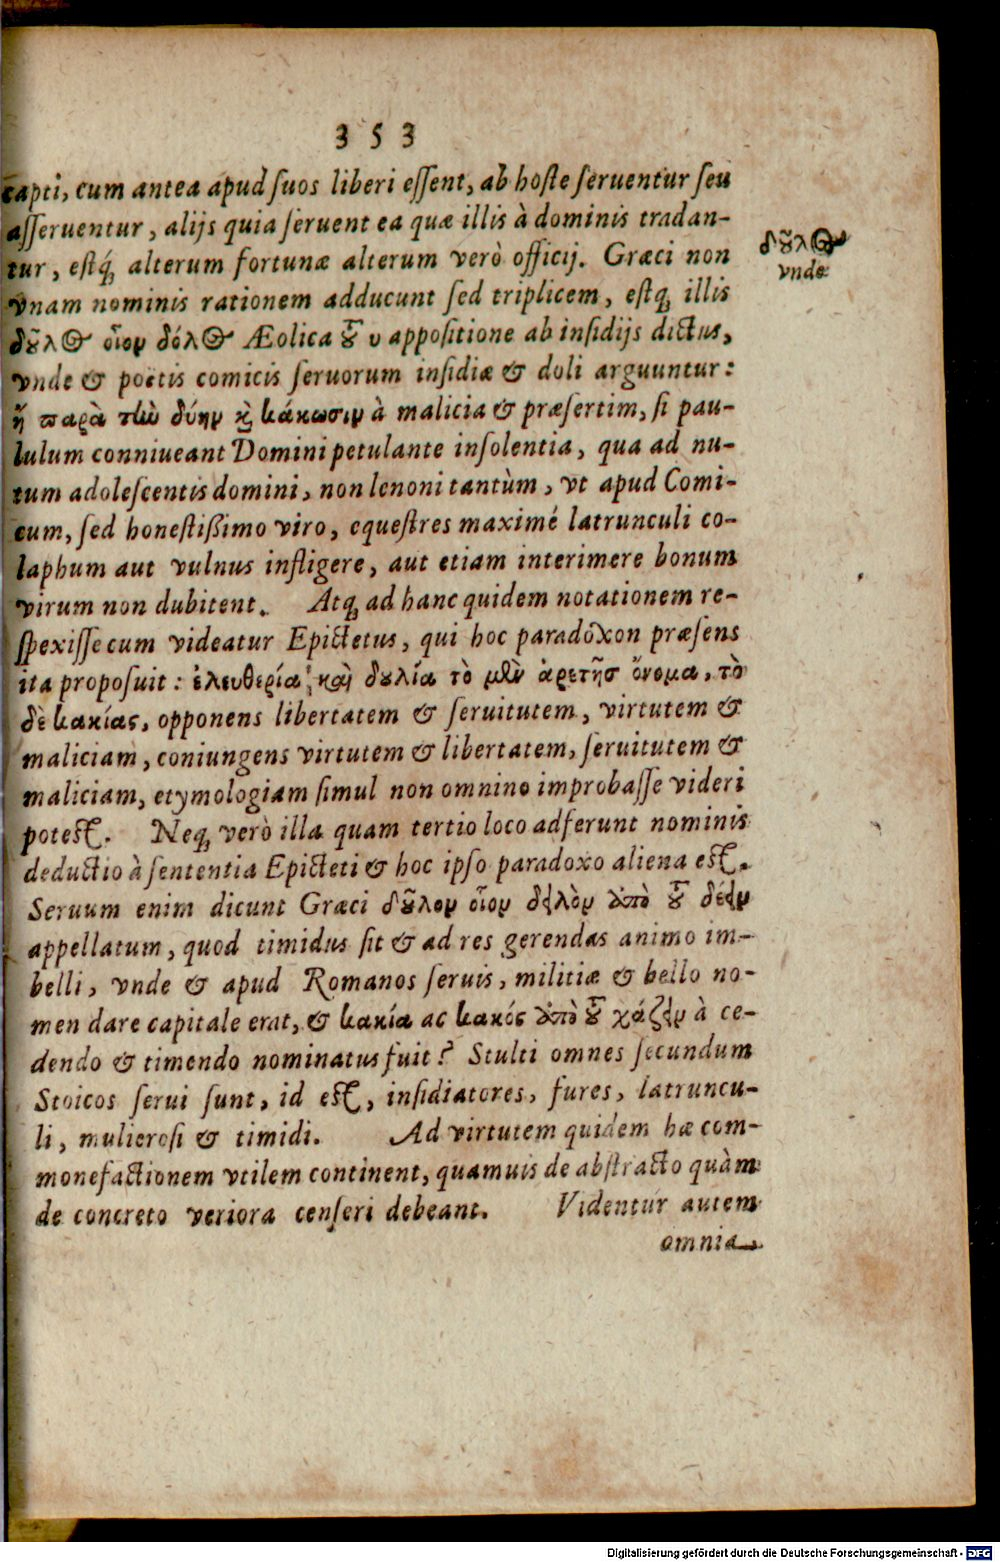 353
capti, cum antea apud suos liberi essent, ab hoste seruentur seu
asseruentur, alijs quia seruent ea quæ illis à dominis tradan-
tur, estq́ alterum fortunæ alterum verò officij. Græci non
vnam nominis rationem adducunt sed triplicem, estq illis
δοῦλος οἷον δόλος Æolica τοῦ υ appositione ab insidijs dictus,
vnde & poëtis comicis seruorum insidiæ & doli arguuntur:
ἢ παρὰ τὴν δύην καὶ κάκωσιν à malicia & præsertim, si pau-
lulum conniueant Domini petulante insolentia, qua ad nu-
tum adolescentis domini, non lenoni tantùm, vt apud Comi-
cum, sed honestißimo viro, equestres maximé latrunculi co-
laphum aut vulnus infligere, aut etiam interimere bonum
virum non dubitent. Atq ad hanc quidem notationem re-
spexisse cum videatur Epictetus, qui hoc paradoxon præsens
ita proposuit: ἐλευθερία καὶ δουλία τὸ μὲν ἀρετῆς ὄνομα, τὸ
δὲ κακίας, opponens libertatem & seruitutem, virtutem &
maliciam, coniungens virtutem & libertatem, seruitutem &
maliciam, etymologiam simul non omnino improbasse videri
potest. Neq verò illa quam tertio loco adferunt nominis
deductio à sententia Epicteti & hoc ipso paradoxo aliena est.
Seruum enim dicunt Græci δοῦλον οἷον δειλὸν ἀπὸ τοῦ δέειν
appellatum, quod timidus sit & ad res gerendas animo im-
belli, vnde & apud Romanos seruis, militiæ & bello no-
men dare capitale erat, & κακία ac κακός ἀπὸ τοῦ χάζειν à ce-
dendo & timendo nominatus fuit? Stulti omnes secundum
Stoicos serui sunt, id est, insidiatores, fures, latruncu-
li, mulierosi & timidi. Ad virtutem quidem hæ com-
monefactionem vtilem continent, quamuis de abstracto quàm
de concreto veriora censeri debeant. Videntur autem
omnia
δοῦλος
vnde
Digitalisierung gefördert durch die Deutsche Forschungsgemeinschaft - DFG